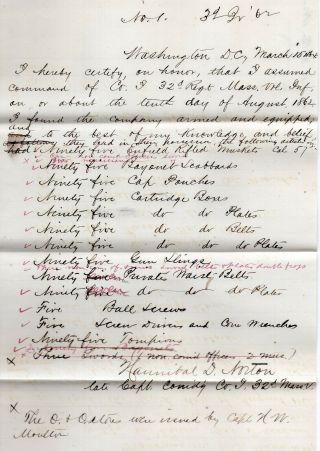 No. 1. 3d Qr '62
Washington D.C. March 15 1864
I hereby certify, on honor, that I assumed
command of Co. I 32d Regt Mass. Vol. Inf.
on or about the tenth day of August 1862.
I found the company armed and equipped,
and to the best of my knowledge, and belief
they had in their possession the following articles
Ninety five Enfield Rifled Muskets Cal 57
Ninety five Bayonet Scabbards
Ninety five Cap Pouches
Ninety five Cartridge Boxes
Ninety five do do Plates
Ninety five do do Belts
Ninety five do do do Plates
Ninety five Gun Slings
Ninety Privates Waist Belts
Ninety do do do Plates
Five Ball Screws
Five Screw Drivers and Cone Wrenches
Ninety five Tompions
Three Swords (2 non com'd officers 2 mus.)
Hannibal D. Norton
late Capt. Comdg Co. I 32d Mass V.
The O. & O. stores were issued by Capt H. W.
Moulton